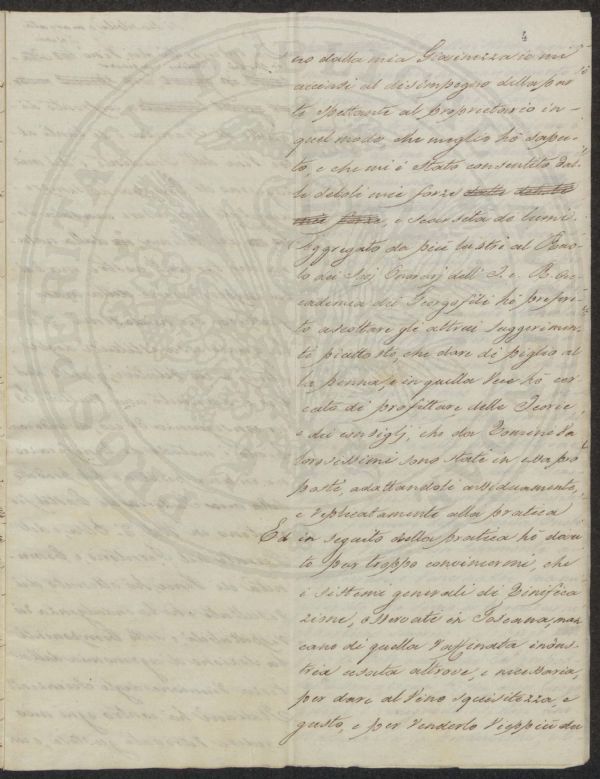 4
ero dalla mia Giovinezza io mi
accinsi al disimpegno della par
te spettante al proprietario in-
quel modo che meglio hò sapu-
to, e che mi è stato consentito dal
le deboli mie forze dalle deboli
mie forze, e scarseta de lumi.
Aggregato da più lustri al Ruo-
lo dei Socj Onorarj dell' I. e. R. Ac-
cademia dei Georgofili hò preferi-
to ascoltare gli altrui suggerimen-
ti piuttosto, che dare di piglio al
la penna, e in quella vece hò cer
cato di profittare delle Teorie,
e dei consiglj, che da Uomini Va
lorosissimi sono stati in essa pro
posti, adattandoli assiduamente,
e replicatamente alla pratica
Ed in seguito della pratica hò dovu
to pur troppo convincermi, che
i sistemi generali di Vinifica
zione, osservati in Toscana, man
cano di quella raffinata indus
tria usata altrove, e necessaria,
per dare al Vino squisitezza, e
gusto, e per venderlo vieppiù du